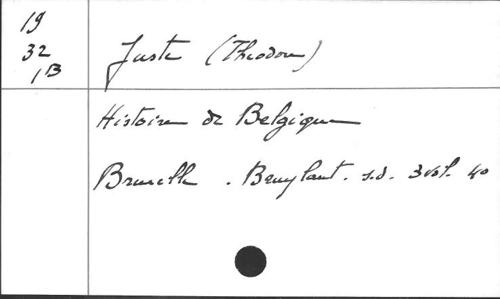 19
32
1B
Juste (Theodore)
Histoire de Belgique
Bruxelles. Bruylant. s.d. 3 vol. 4o